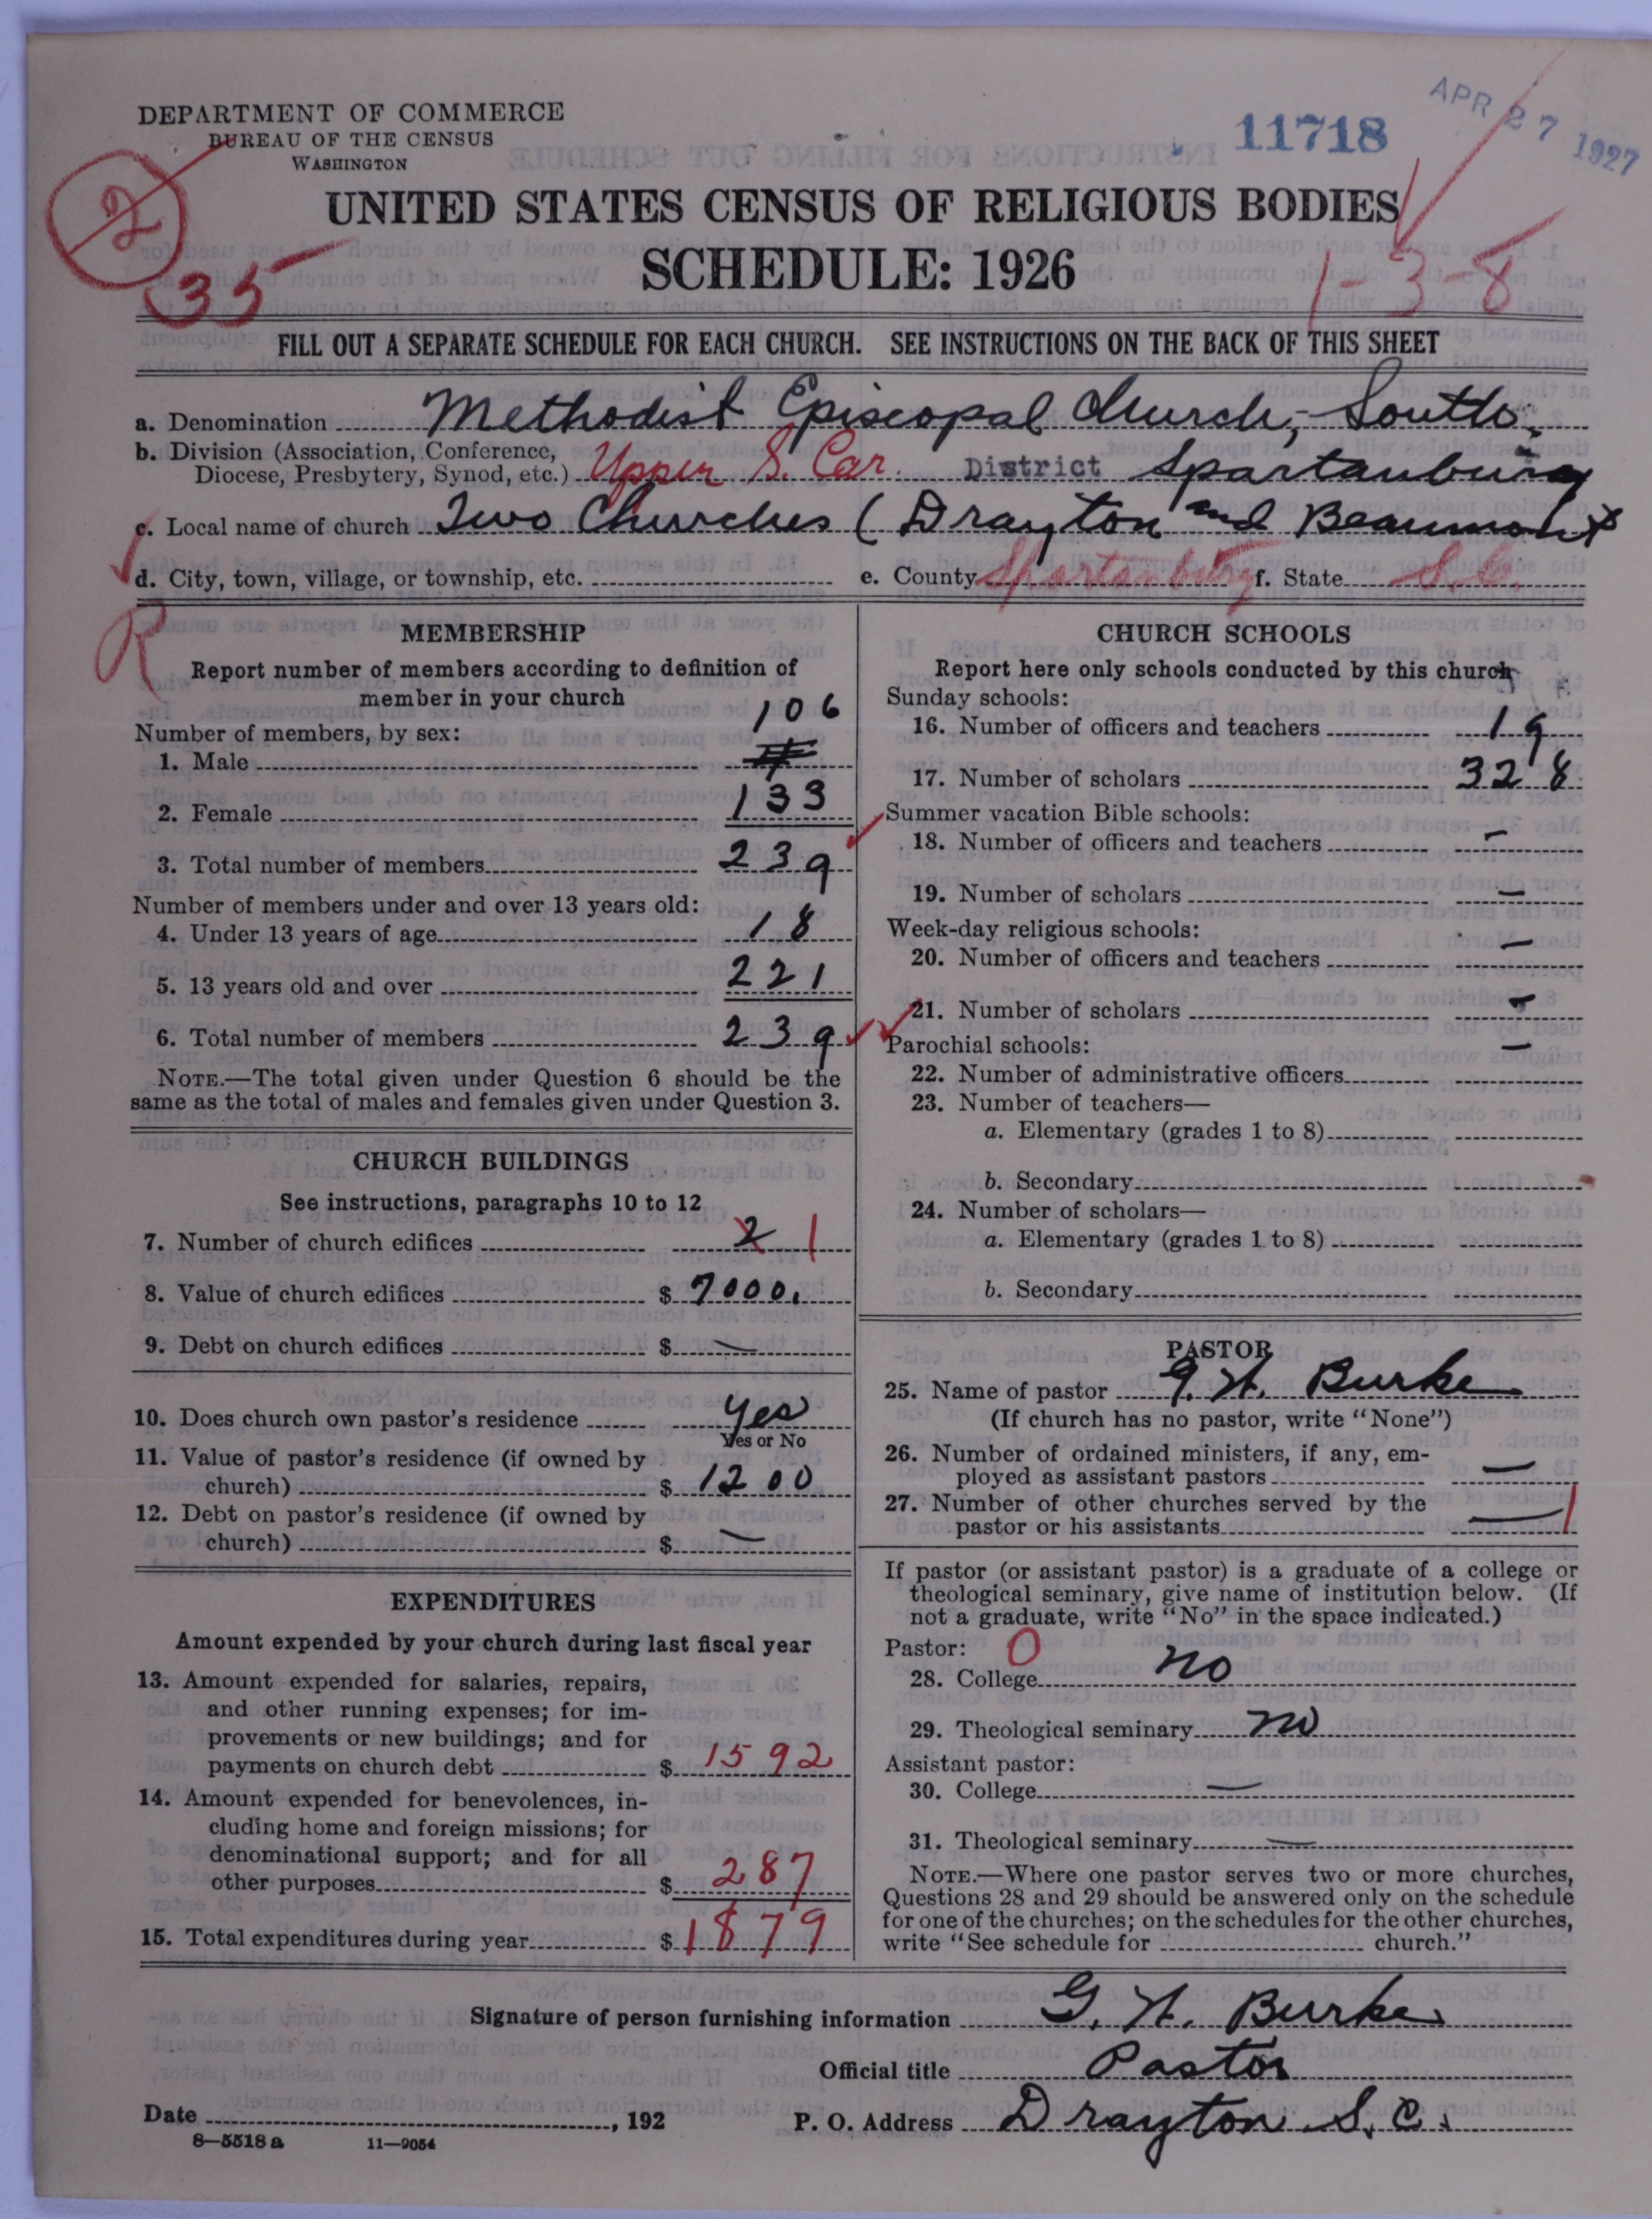 DEPARTMENT OF COMMERCE
BUREAU OF THE CENSUS
WASHINGTON
11718
APR 27 1927
2
35
UNITED STATES CENSUS OF RELIGIOUS BODIES
SCHEDULE: 1926
1-3-8
FILL OUT A SEPARATE SCHEDULE FOR EACH CHURCH. SEE INSTRUCTIONS ON THE BACK OF THIS SHEET
a. Denomination Methodist Episcopal Church, South.
b. Division (Association, Conference,
Diocese, Presbytery, Synod, etc.) Upper S. Car. District Spartanburg
c. Local name of church Two Churches (Drayton and Beaumont
d. City, town, village, or township, etc. e. County Spartanburg f. State S.C.
R
MEMBERSHIP
Report number of members according to definition of
member in your church
Number of members, by sex:
106
1. Male
2. Female 133
3. Total number of members 239
Number of members under and over 13 years old:
4. Under 13 years of age 18
5. 13 years old and over 221
6. Total number of members 239
NOTE.—The total given under Question 6 should be the
same as the total of males and females given under Question 3.
CHURCH BUILDINGS
See instructions, paragraphs 10 to 12
7. Number of church edifices 2 1
8. Value of church edifices $ 7000.
9. Debt on church edifices $ —
10. Does church own pastor's residence yes
Yes or No
11. Value of pastor's residence (if owned by
church) $ 1200
12. Debt on pastor's residence (if owned by
church) $ —
EXPENDITURES
Amount expended by your church during last fiscal year
13. Amount expended for salaries, repairs,
and other running expenses; for im-
provements or new buildings; and for
payments on church debt $ 1592
14. Amount expended for benevolences, in-
cluding home and foreign missions; for
denominational support; and for all
other purposes $ 287
15. Total expenditures during year $ 1879
CHURCH SCHOOLS
Report here only schools conducted by this church
Sunday schools:
16. Number of officers and teachers 19
17. Number of scholars 328
Summer vacation Bible schools:
18. Number of officers and teachers —
19. Number of scholars —
Week-day religious schools:
20. Number of officers and teachers —
21. Number of scholars —
Parochial schools:
22. Number of administrative officers —
23. Number of teachers—
a. Elementary (grades 1 to 8)
b. Secondary
24. Number of scholars—
a. Elementary (grades 1 to 8)
b. Secondary
PASTOR
25. Name of pastor G. H. Burke
(If church has no pastor, write "None")
26. Number of ordained ministers, if any, em-
ployed as assistant pastors —
27. Number of other churches served by the
pastor or his assistants — 1
If pastor (or assistant pastor) is a graduate of a college or
theological seminary, give name of institution below. (If
not a graduate, write "No" in the space indicated.)
Pastor: O
28. College no
29. Theological seminary no
Assistant pastor:
30. College —
31. Theological seminary —
NOTE.—Where one pastor serves two or more churches,
Questions 28 and 29 should be answered only on the schedule
for one of the churches; on the schedules for the other churches,
write "See schedule for church."
Signature of person furnishing information G. H. Burke
Official title Pastor
Date , 192 P. O. Address Drayton S. C.
8—5518 a 11—9054